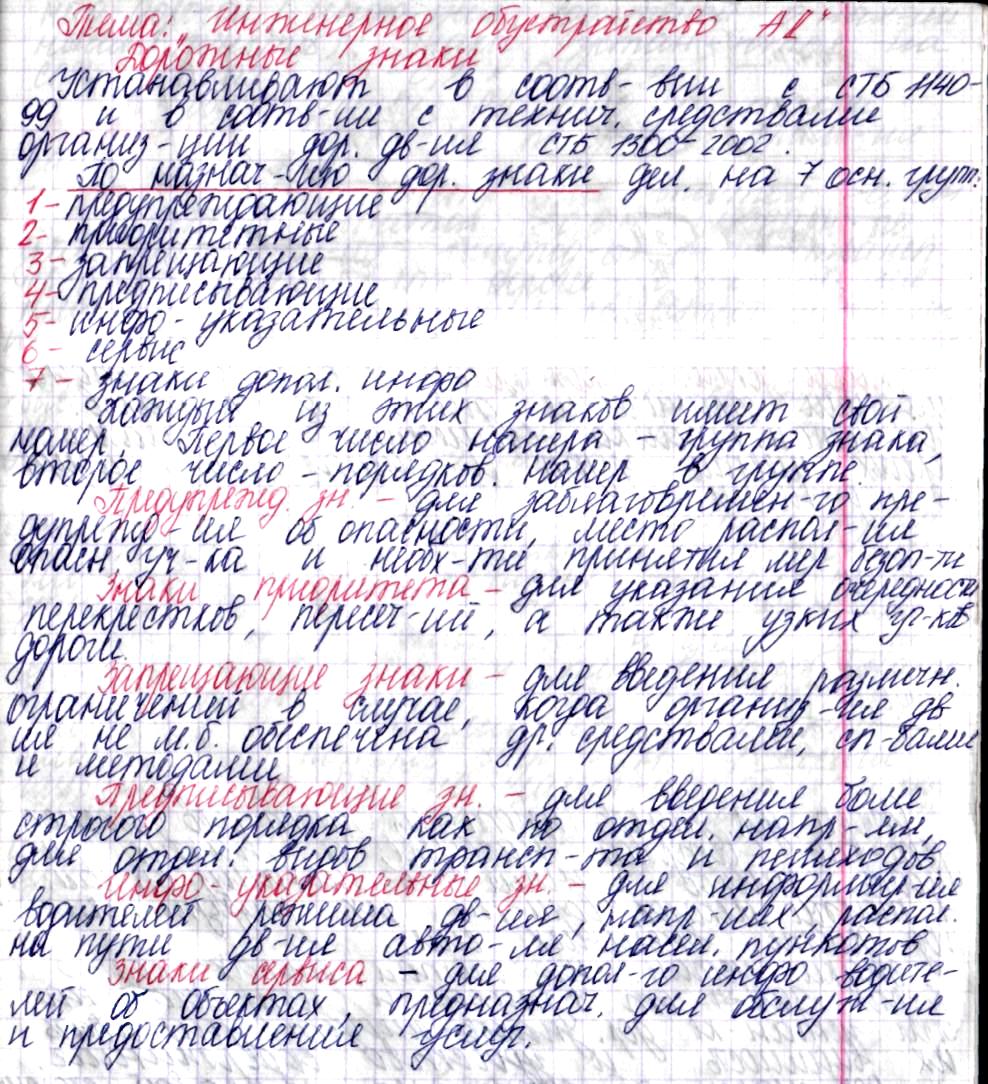 Тема: "Инженерное обустройство АД"
Дорожные знаки
Устанавливают в соотв-вии с СТБ 1140-
99 и в соотв-ии с технич. средствами
организ-ции дор. дв-ия СТБ 1300-2002.
По назнач-нию дор. знаки дел. на 7 осн. групп:
1- предупреждающие
2- приоритетные
3- запрещающие
4- предписывающие
5- инфо-указательные
6- сервис
7- знаки допол. инфо
Каждый из этих знаков имеет свой
номер. Первое число номера - группа знака,
второе число - порядков. номер в группе.
Предупрежд. зн. - для заблаговремен-го пре-
дупрежд-ия об опасности, место распол-ия
опасн. уч-ка и необх-ти принятия мер безоп-ти
Знаки приоритета - для указания очередности
перекрестков, пересеч-ий, а также узких уч-ков
дороги.
Запрещающие знаки - для введения различн.
ограничений в случае, когда организ-ия дв
ия не м.б. обеспечена др. средствами, сп-бами
и методами
Предписывающие зн. - для введения более
строгого порядка как по отдел. напр-ям,
для отдел. видов трансп-та и пешеходов
Инфо-указательные зн. - для информир-ия
водителей режима дв-ия, напр-иях, распол.
на пути дв-ия авто-ля насел. пунктов
Знаки сервиса - для допол-го инфо водите-
лей об объектах, предназнач. для обслуж-ия
и предоставления услуг.